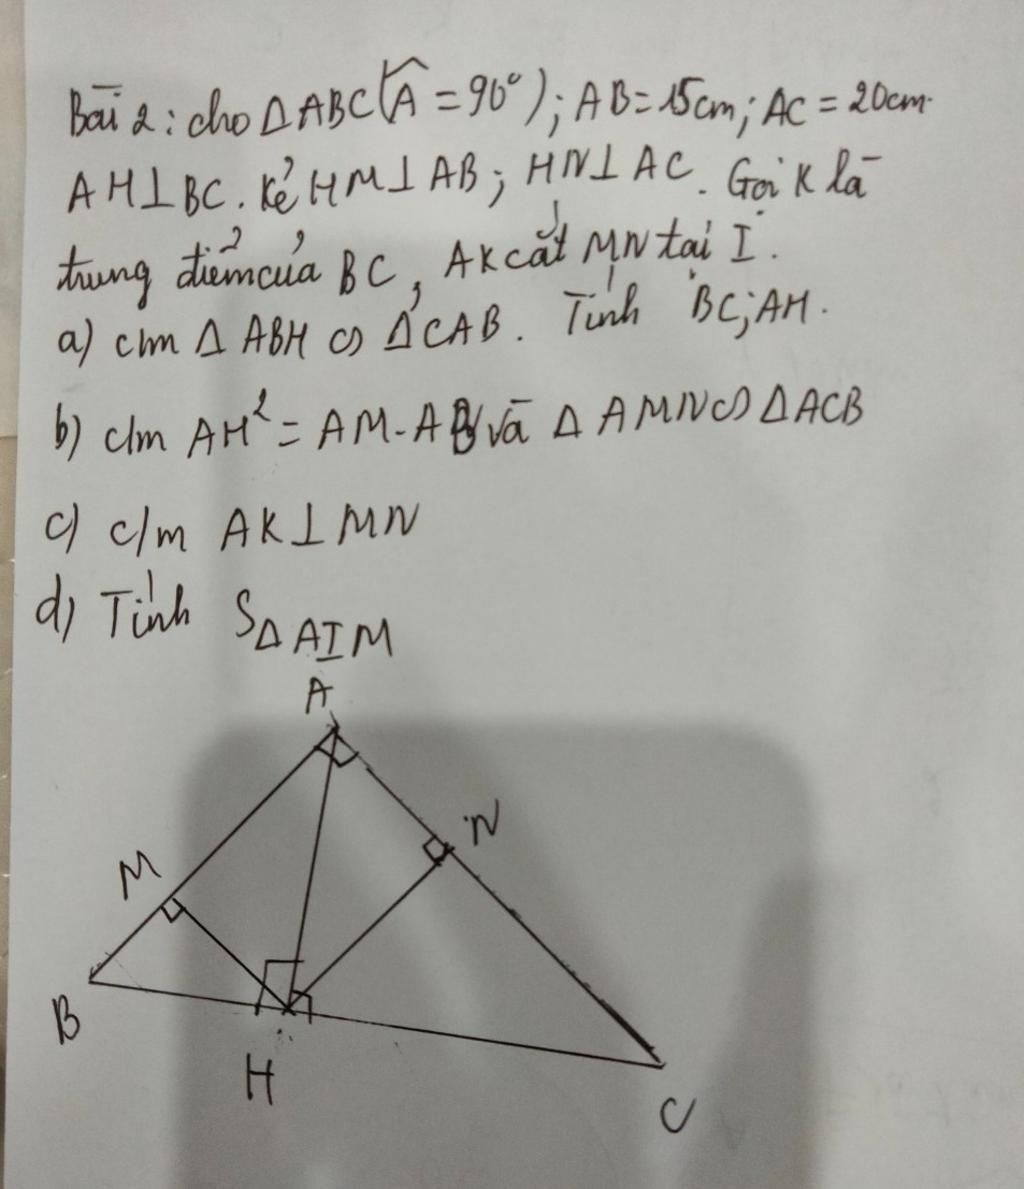 Bài 2: cho Δ ABC (Â = 90°); AB = 15cm; AC = 20cm.
AH⊥BC. Kẻ HM⊥AB; HN⊥AC. Gọi K là
trung điểm của BC, AK cắt MN tại I.
a) c/m Δ ABH ∽ ΔCAB. Tính BC; AH.
b) c/m AH² = AM.AB và Δ AMN ∽ ΔACB
c) c/m AK⊥MN
d) Tính SΔAIM
A
N
M
B
H
C